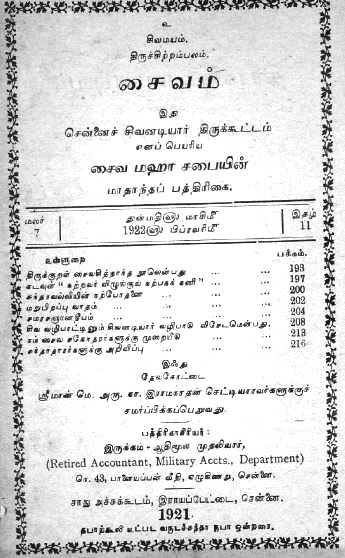 உ
சிவமயம்.
திருச்சிற்றம்பலம்.
சைவம்
இது
சென்னைச் சிவனடியார் திருக்கூட்டம்
எனப் பெயரிய
சைவ மஹா சபையின்
மாதாந்தப் பத்திரிகை.
மலர் 7
துன்மதி௵ மாசி௴
1922௵ பிப்ரவரி௴
இதழ் 11
உள்ளுறை பக்கம்.
திருக்குறள் சைவசித்தாந்த நூலென்பது ... ... 193
கடவுள் " கற்றவர் விழுங்குங் கற்பகக் கனி " ... ... 197
சுந்தரவல்லியின் கற்போதனை ... ... 200
மறுபிறப்பு வாதம் ... ... ... 202
சமரசஞானதீபம் ... ... ... 204
சிவ வழிபாட்டினும் சிவனடியார் வழிபாடு விசேடமென்பது. 208
நம் சைவ சகோதரர்களுக்கு முறையீடு ... ... 213
சந்தாதாரர்களுக்கு அறிவிப்பு ... ... ... 216
இஃது
தேவகோட்டை
ஸ்ரீமான் மெ. அரு. கா. இராமநாதன் செட்டியாரவர்களுக்குச்
சமர்ப்பிக்கப்பெறுவது.
பத்திராசிரியர்:
இருக்கம் - ஆதிமூல முதலியார்,
(Retired Accountant, Military Accts., Department)
நெ. 43, பாளையப்பன் வீதி, எழுகிணறு, சென்னை.
சாது அச்சுக்கூடம், இராயப்பேட்டை, சென்னை.
1921
தபாற்கூலி உட்பட வருடச்சந்தா ரூபா ஒன்றரை.